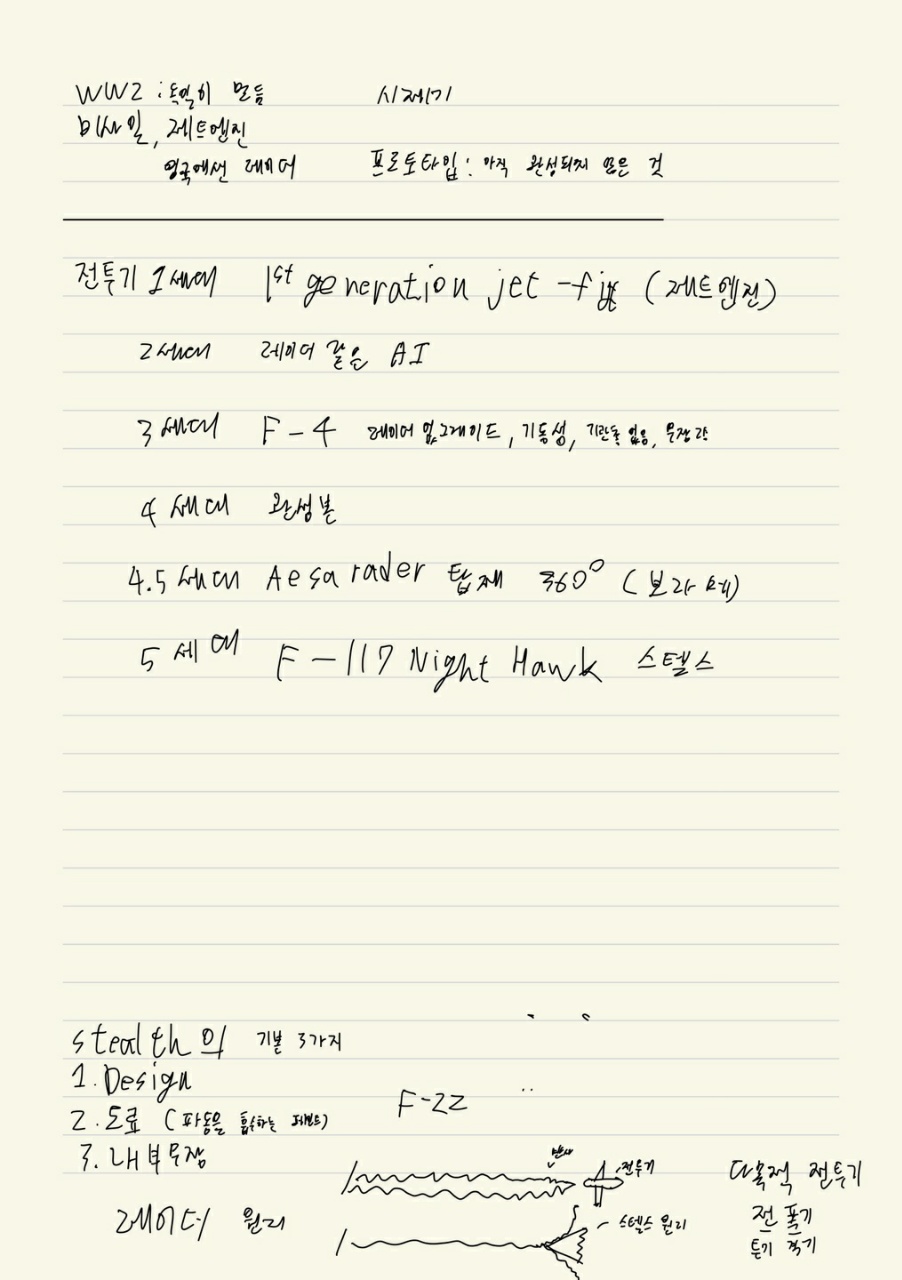 WW2 : 독일이 만듬 시제기
미사일, 제트엔진
영국에선 레이더 프로토타입 : 아직 완성되지 않은 것
전투기 1세대 1st generation jet - (제트엔진)
2세대 레이더 같은 AI
3세대 F-4 레이더 업그레이드, 기동성, 기관총 없음, 무장
4세대 완성본
4.5세대 Aesa rader 탑재 360° (보라매)
5세대 F-117 Night Hawk 스텔스
stealth의 기본 3가지
1. Design
2. 도료 (파동을 흡수하는 페인트) F-22
3. 내부무장
반사 전투기 다목적 전투기
레이더 원리 스텔스 원리 전 폭기
투기 격기